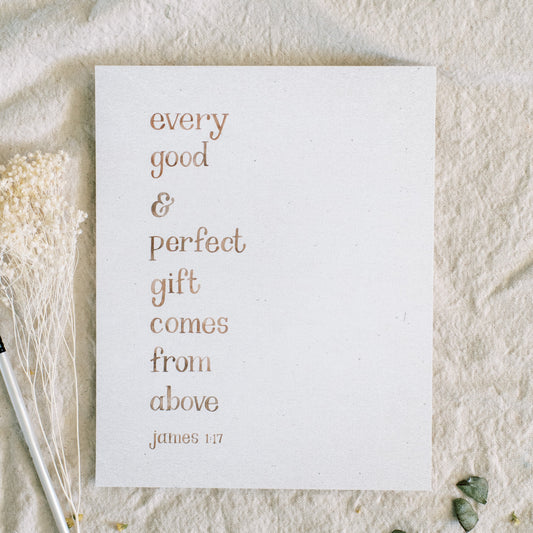 every
good
&
perfect
gift
comes
from
above
james 1:17